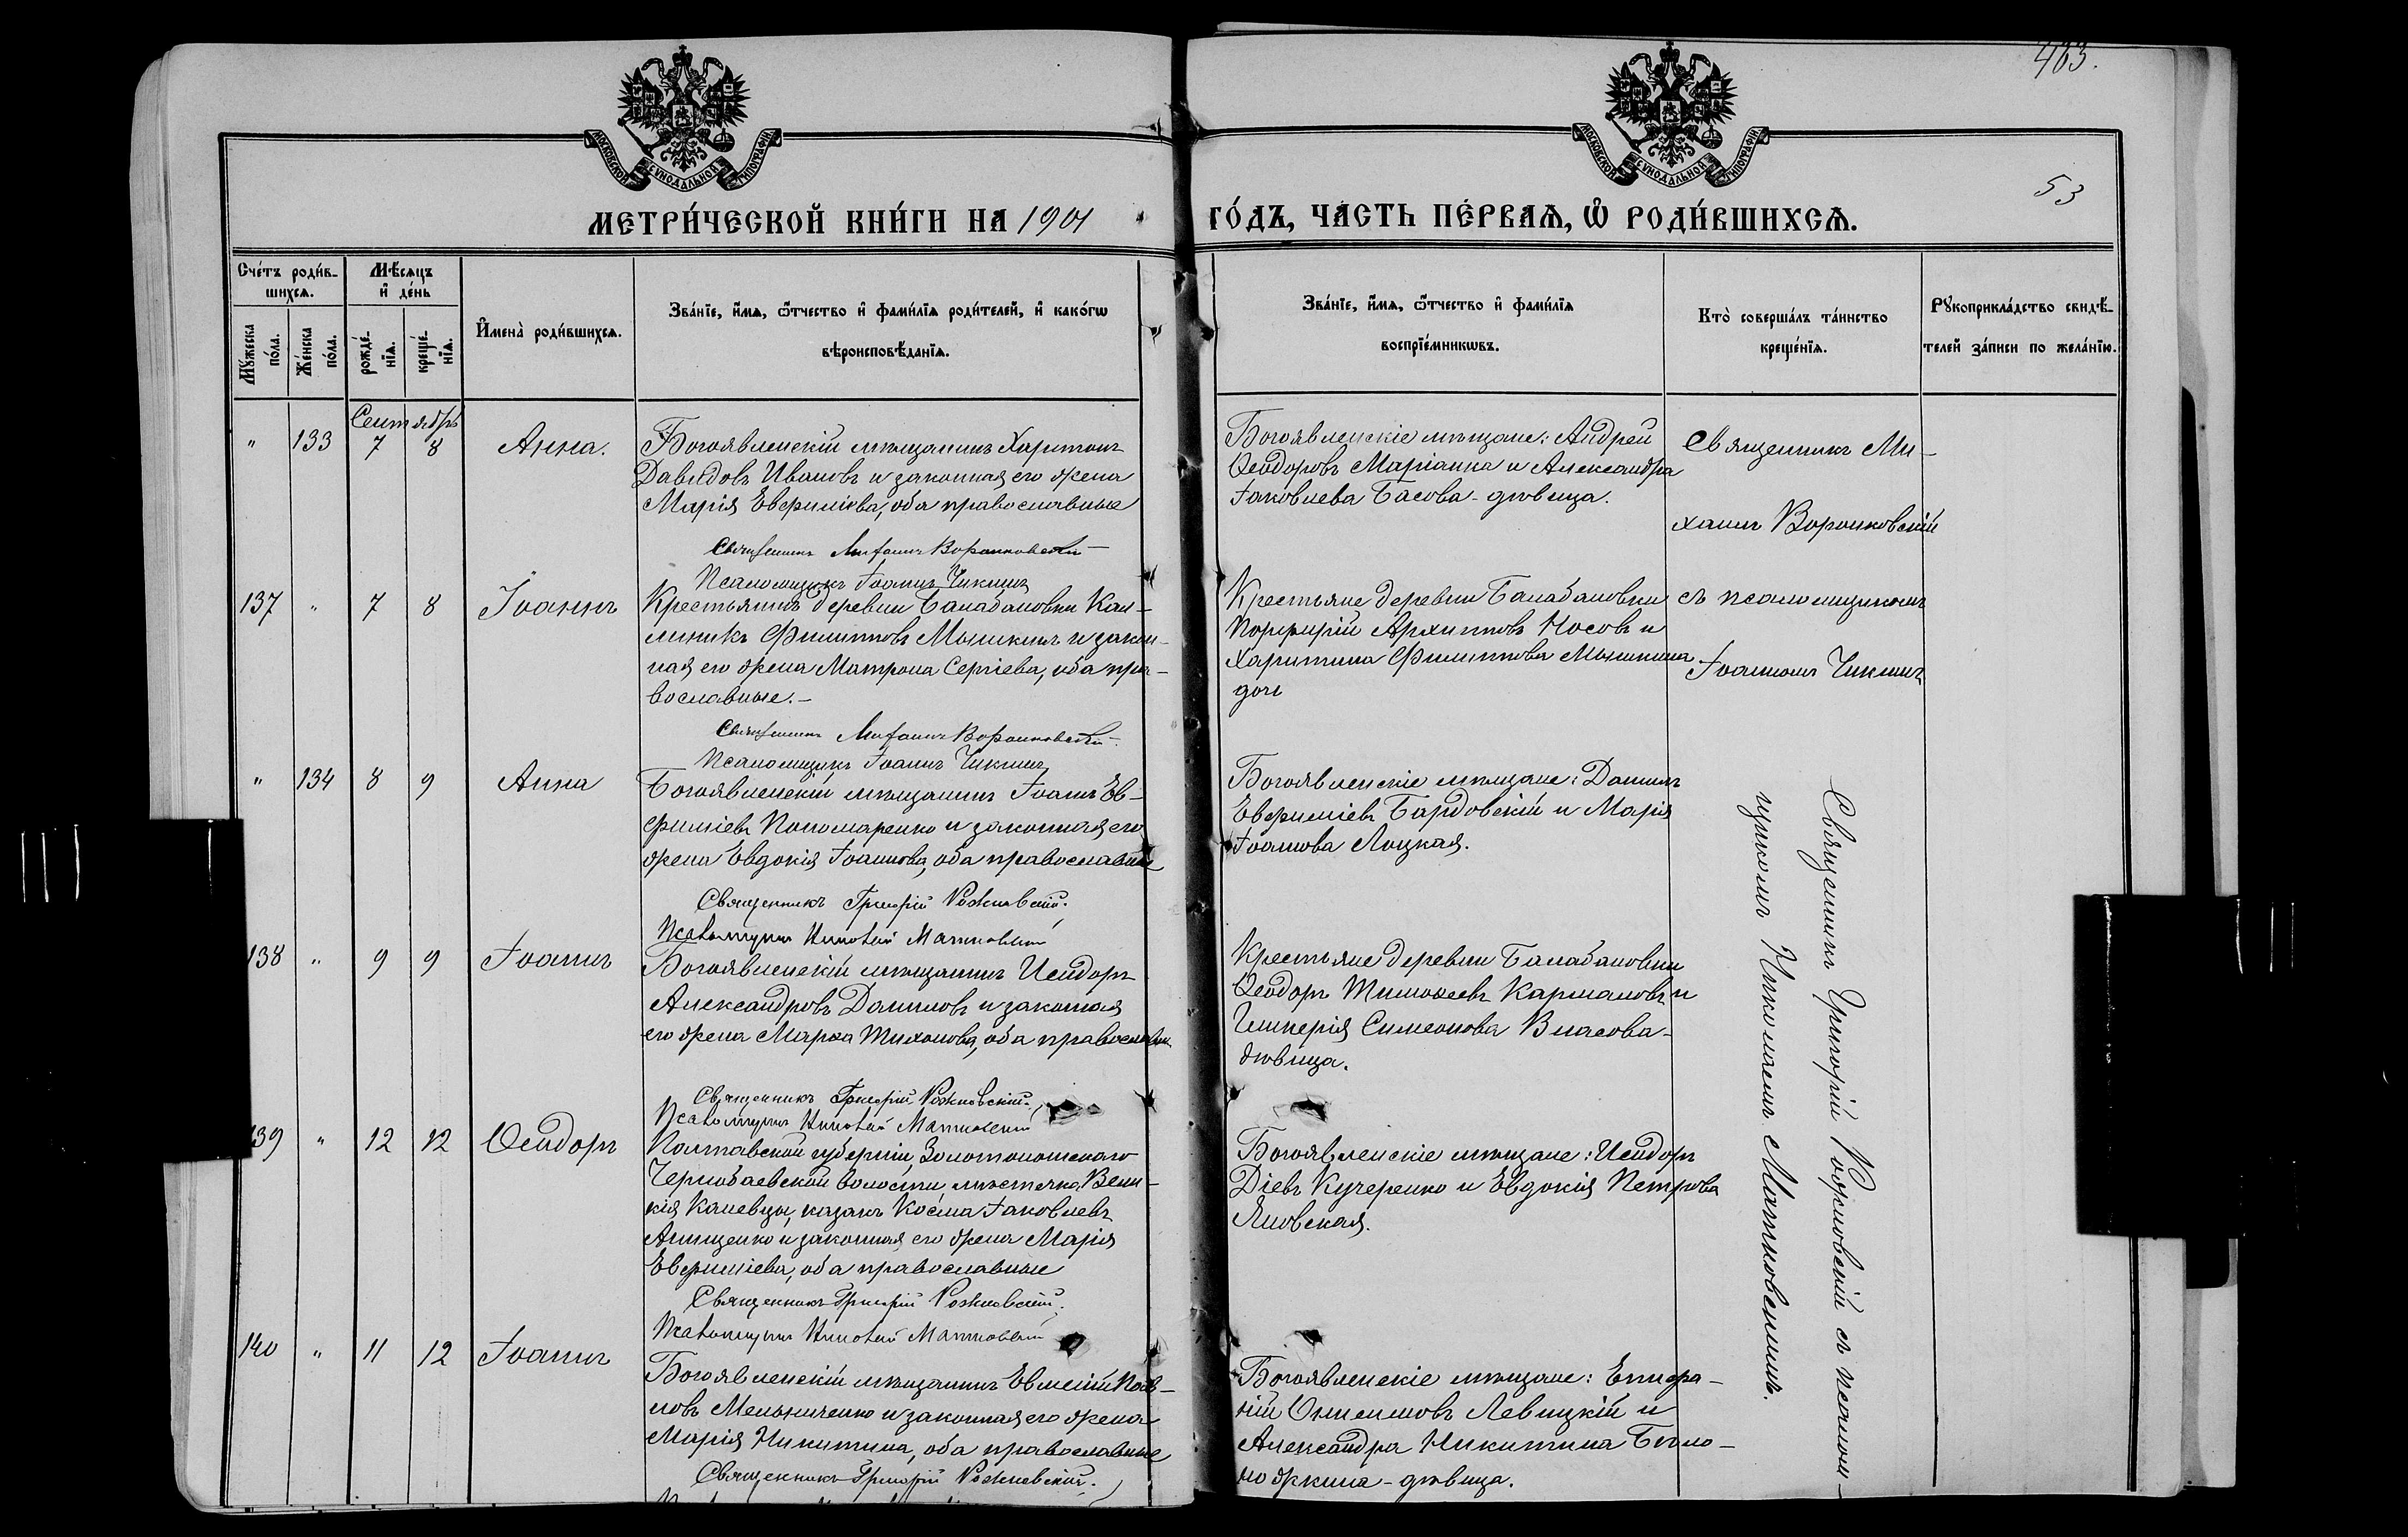 463.
53
МОСКОВСКОЙ СѴНОДАЛЬНОЙ ТИПОГРАФІИ
МОСКОВСКОЙ СѴНОДАЛЬНОЙ ТИПОГРАФІИ
МЕТРИ́ЧЕСКОЙ КНИ́ГИ НА 1901
ГО́ДЪ, ЧА́СТЬ ПЕ́РВАѦ, Ѡ҆ РОДИ́ВШИХСѦ.
Сче́тъ роди́в-
шихсѧ.
Мꙋ́жеска по́ла.
Же́нска по́ла.
Мѣ́сѧцъ
и҆ де́нь
рожде́-нїѧ.
креще́-нїѧ.
И҆мена̀ роди́вшихсѧ.
Зва́нїе, и҆́мѧ, ѻ҆́тчество и҆ фами́лїѧ роди́телей, и҆ како́гѡ
вѣроисповѣ́данїѧ.
Зва́нїе, и҆́мѧ, ѻ҆́тчество и҆ фами́лїѧ
воспрїе́мникѡвъ.
Кто̀ соверша́лъ та́инство
креще́нїѧ.
Рꙋкоприкла́дство свидѣ́-
телей за́писи по жела́нїю.
Сентябрь
" 133 7 8 Анна.
Богоявленскій мѣщанинъ Харитонъ
Давидовъ Ивановъ и законная его жена
Марія Евфиміева, оба православные
Священникъ Михаилъ Воронковскій
Псаломщикъ Іоаннъ Чикминъ
Богоявленскіе мѣщане: Андрей
Ѳеодоровъ Маріанка и Александра
Іаковлева Басова - дѣвица.
Священникъ Ми-
хаилъ Воронковскій
съ псаломщикомъ
Іоанномъ Чикминъ
137 " 7 8 Іоаннъ
Крестьянинъ деревни Балабановки Кал-
линикъ Филипповъ Мышкинъ и закон-
ная его жена Матрона Сергіева, оба пра-
вославные. -
Священникъ Михаилъ Воронковскій
Псаломщикъ Іоаннъ Чикминъ
Крестьяне деревни Балабановки
Порфирій Архиповъ Носовъ и
Харитина Филиппова Мышкина
" 134 8 9 Анна
Богоявленскій мѣщанинъ Іоаннъ Ев-
фиміевъ Пономаренко и законная его
жена Евдокія Іоаннова, оба православные
Священникъ Григорій Рожновскій.
Псаломщикъ Николай Матковскій
Богоявленскіе мѣщане: Даніилъ
Евфиміевъ Бардовскій и Марія
Іоаннова Луцкая.
Священникъ Григорій Рожновскій съ псалом-
щикомъ Николаемъ Матковскимъ.
138 " 9 9 Іоаннъ
Богоявленскій мѣщанинъ Исидоръ
Александровъ Даниловъ и законная
его жена Марѳа Тихонова, оба православн.
Священникъ Григорій Рожновскій.
Псаломщикъ Николай Матковскій
Крестьяне деревни Балабановки
Ѳеодоръ Тимоѳеевъ Кармановъ и
Гликерія Симеонова Власова -
дѣвица.
139 " 12 12 Ѳеодоръ
Полтавской губерніи, Золотоношскаго
Чернобаевской волости, мѣстечка Вели-
кія Каневцы, казакъ Косма Іаковлевъ
Анищенко и законная его жена Марія
Евфиміева, оба православные
Священникъ Григорій Рожновскій.
Псаломщикъ Николай Матковскій
Богоявленскіе мѣщане: Исидоръ
Діевъ Кучеренко и Евдокія Петрова
Яновская.
140 " 11 12 Іоаннъ
Богоявленскій мѣщанинъ Евменій Пав-
ловъ Мельниченко и законная его жена
Марія Никитина, оба православные
Священникъ Григорій Рожновскій.
Богоявленскіе мѣщане: Епифа-
ній Онисимовъ Левицкій и
Александра Никитина Бѣло-
ножкина - дѣвица.